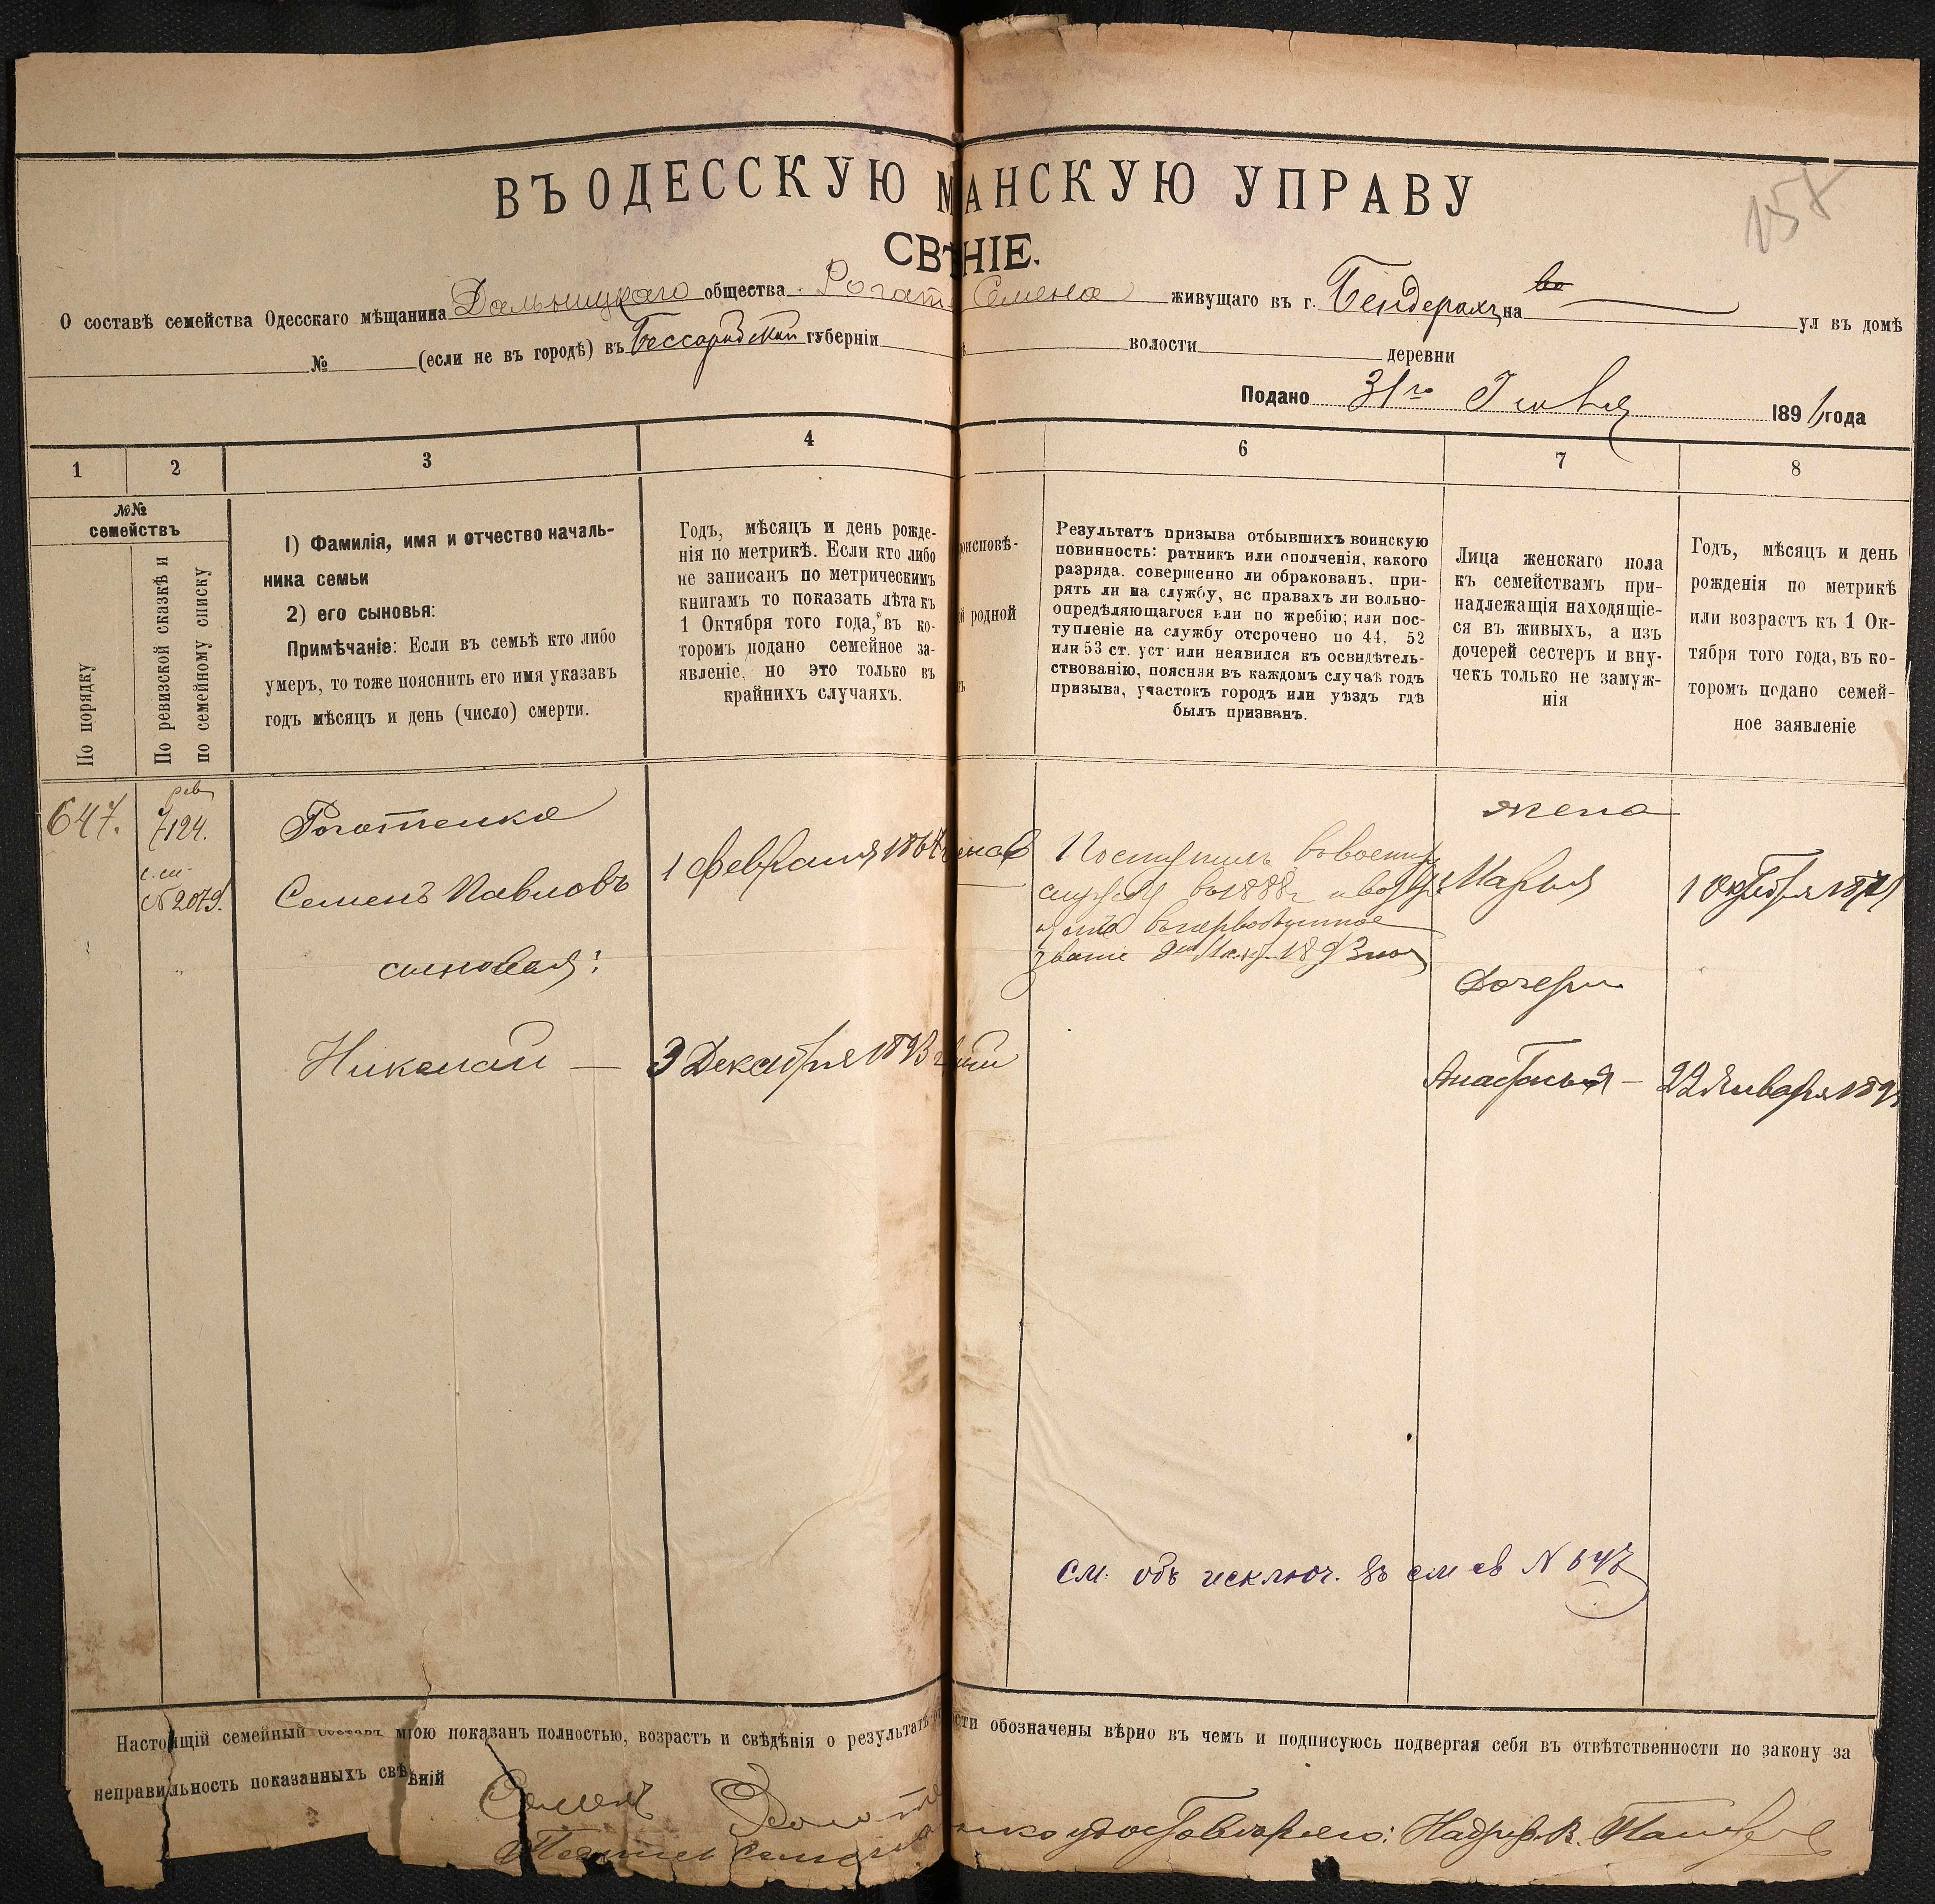 158
ВЪ ОДЕССКУЮ М АНСКУЮ УПРАВУ
СВѢ НІЕ.
О составѣ семейства Одесскаго мѣщанина Дальницкаго общества Рогат Семена живущаго въ г. Бендерахъ на ул въ домѣ
№ (если не въ городѣ) въ Бессарабской губерніи волости деревни
Подано 31го 1891 года
1 2 3 4 6 7 8
№№ семействъ
По порядку
По ревизской сказкѣ и
по семейному списку
1) Фамилія, имя и отчество началь-
ника семьи
2) его сыновья:
Примѣчаніе: Если въ семьѣ кто либо
умеръ, то тоже пояснить его имя указавъ
годъ мѣсяцъ и день (число) смерти.
Годъ, мѣсяцъ и день рожде-
нія по метрикѣ. Если кто либо
не записанъ по метрическимъ
книгамъ то показать лѣта къ
1 Октября того года, въ ко-
торомъ подано семейное за-
явленіе, но это только въ
крайнихъ случаяхъ.
оисповѣ-
й родной
Результатъ призыва отбывшихъ воинскую
повинность: ратникъ или ополченія, какого
разряда. совершенно ли обракованъ, при-
рять ли на службу, нс правахъ ли вольно-
опредѣляющагося или по жребію; или пос-
тупленіе на службу отсрочено по 44, 52
или 53 ст. уст или неявился къ освидѣтель-
ствованію, поясняя въ каждомъ случаѣ годъ
призыва, участокъ городъ или уѣздъ гдѣ
былъ призванъ.
Лица женскаго пола
къ семействамъ при-
надлежащія находящіе-
ся въ живыхъ, а изъ
дочерей сестеръ и вну-
чекъ только не замуж-
нія
Годъ, мѣсяцъ и день
рожденія по метрикѣ
или возрастъ къ 1 Ок-
тября того года, въ ко-
торомъ подано семей-
ное заявленіе
647.
рев
7124.
с.сп.
№ 2079.
Рогатенко
Семенъ Павловъ
1 Февраля
Поступилъ
службу
звание
жена
Марья
1 Октября
сыновья:
Дочери
Николай — 3 Декабря 1893
Анастасья — 22 Января
См. объ исключ. въ см св N 647
Настоящій семейный составъ мною показанъ полностью, возрастъ и свѣдѣнія о результатѣ сти обозначены вѣрно въ чемъ и подписуюсь подвергая себя въ отвѣтственности по закону за
неправильность показанныхъ свѣ ѣній
Семенъ
удостовѣряю: Надзир. В.